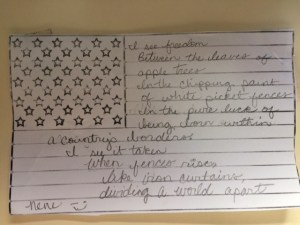 I see freedom
Between the leaves of
apple trees
In the chipping paint
of white picket fences
In the pure luck of
being born within
a country's borders
I see it taken
when fences rises
like iron curtains,
dividing a world apart